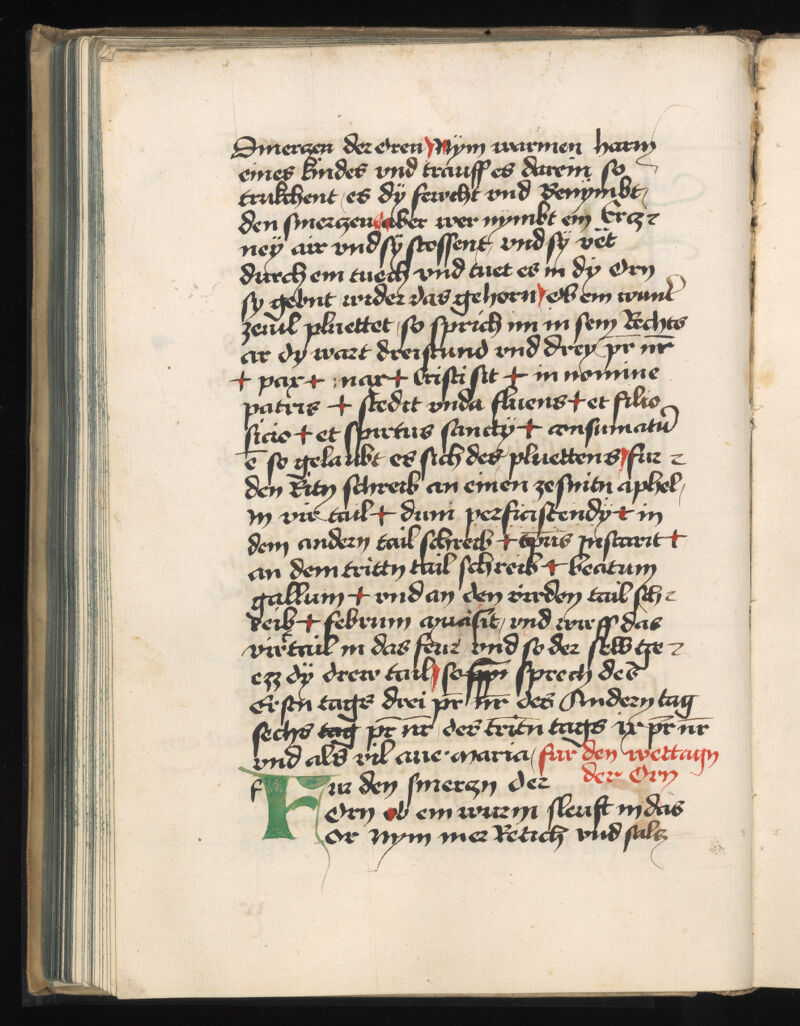 Smerczen der oren Nym warmen harm
eines kindes vnd trauff es darein so
trukchent es dÿ fewcht vnd Benÿmbt
den smerczen aber wer nymbt ein Ercz
neÿ air vnd sÿ stossent vnd sÿ
durch ein tuech vnd tuet es in dÿ Orn
sy gebnt wider das gehorn Ob ein
pluettet so sprich im in sein Rechts
or dy wart dreistund vnd dreÿ pr nr
+ pax + max + Cristi sit + in nomine
patris + stedit vnda fluens + et filio
sicio + et spirtus sancty + consumatu
e so gelaubt es sich des pluettens fur
den Ritn schreib an einen zesnitn aphel
in vir tail + dum + in
dem andern tail schreib + +
an dem trittn tail schreib + beatum
gallum + vnd an den virden tail sch
reib + febrium quasit vnd wirff das
virtail in das feur vnd so der selb
ezz dÿ drew tail so sprech des
Ersten tags drei pr nr des Andern tag
sechs tag pr nr des tritn tags ix pr nr
vnd als vil aue maria fur den wettagn
der Orn
Fur den smerczn der
Orn ob ein wurm sleuft in das
Or Nym mer Retich vnd salcz